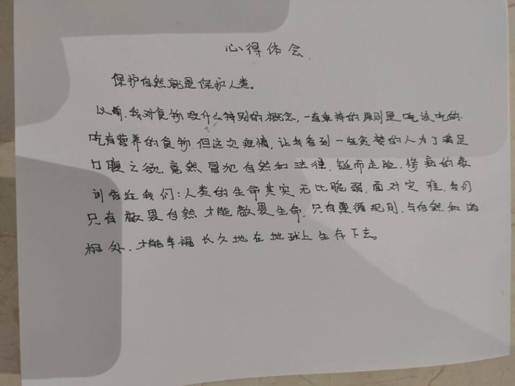 心得体会
保护自然就是保护人类。
以前,我对食物没什么特别的概念,一直秉持的原则是吃该吃的
吃有营养的食物,但这次疫情,让我看到一些贪婪的人为了满足
口腹之欲,竟然冒犯自然和法律,铤而走险。惨痛的教
训告诫我们:人类的生命其实无比脆弱,面对灾难,我们
只有敬畏自然才能敬畏生命,只有遵循规则,与自然和谐
相处,才能幸福长久地在地球上生存下去。